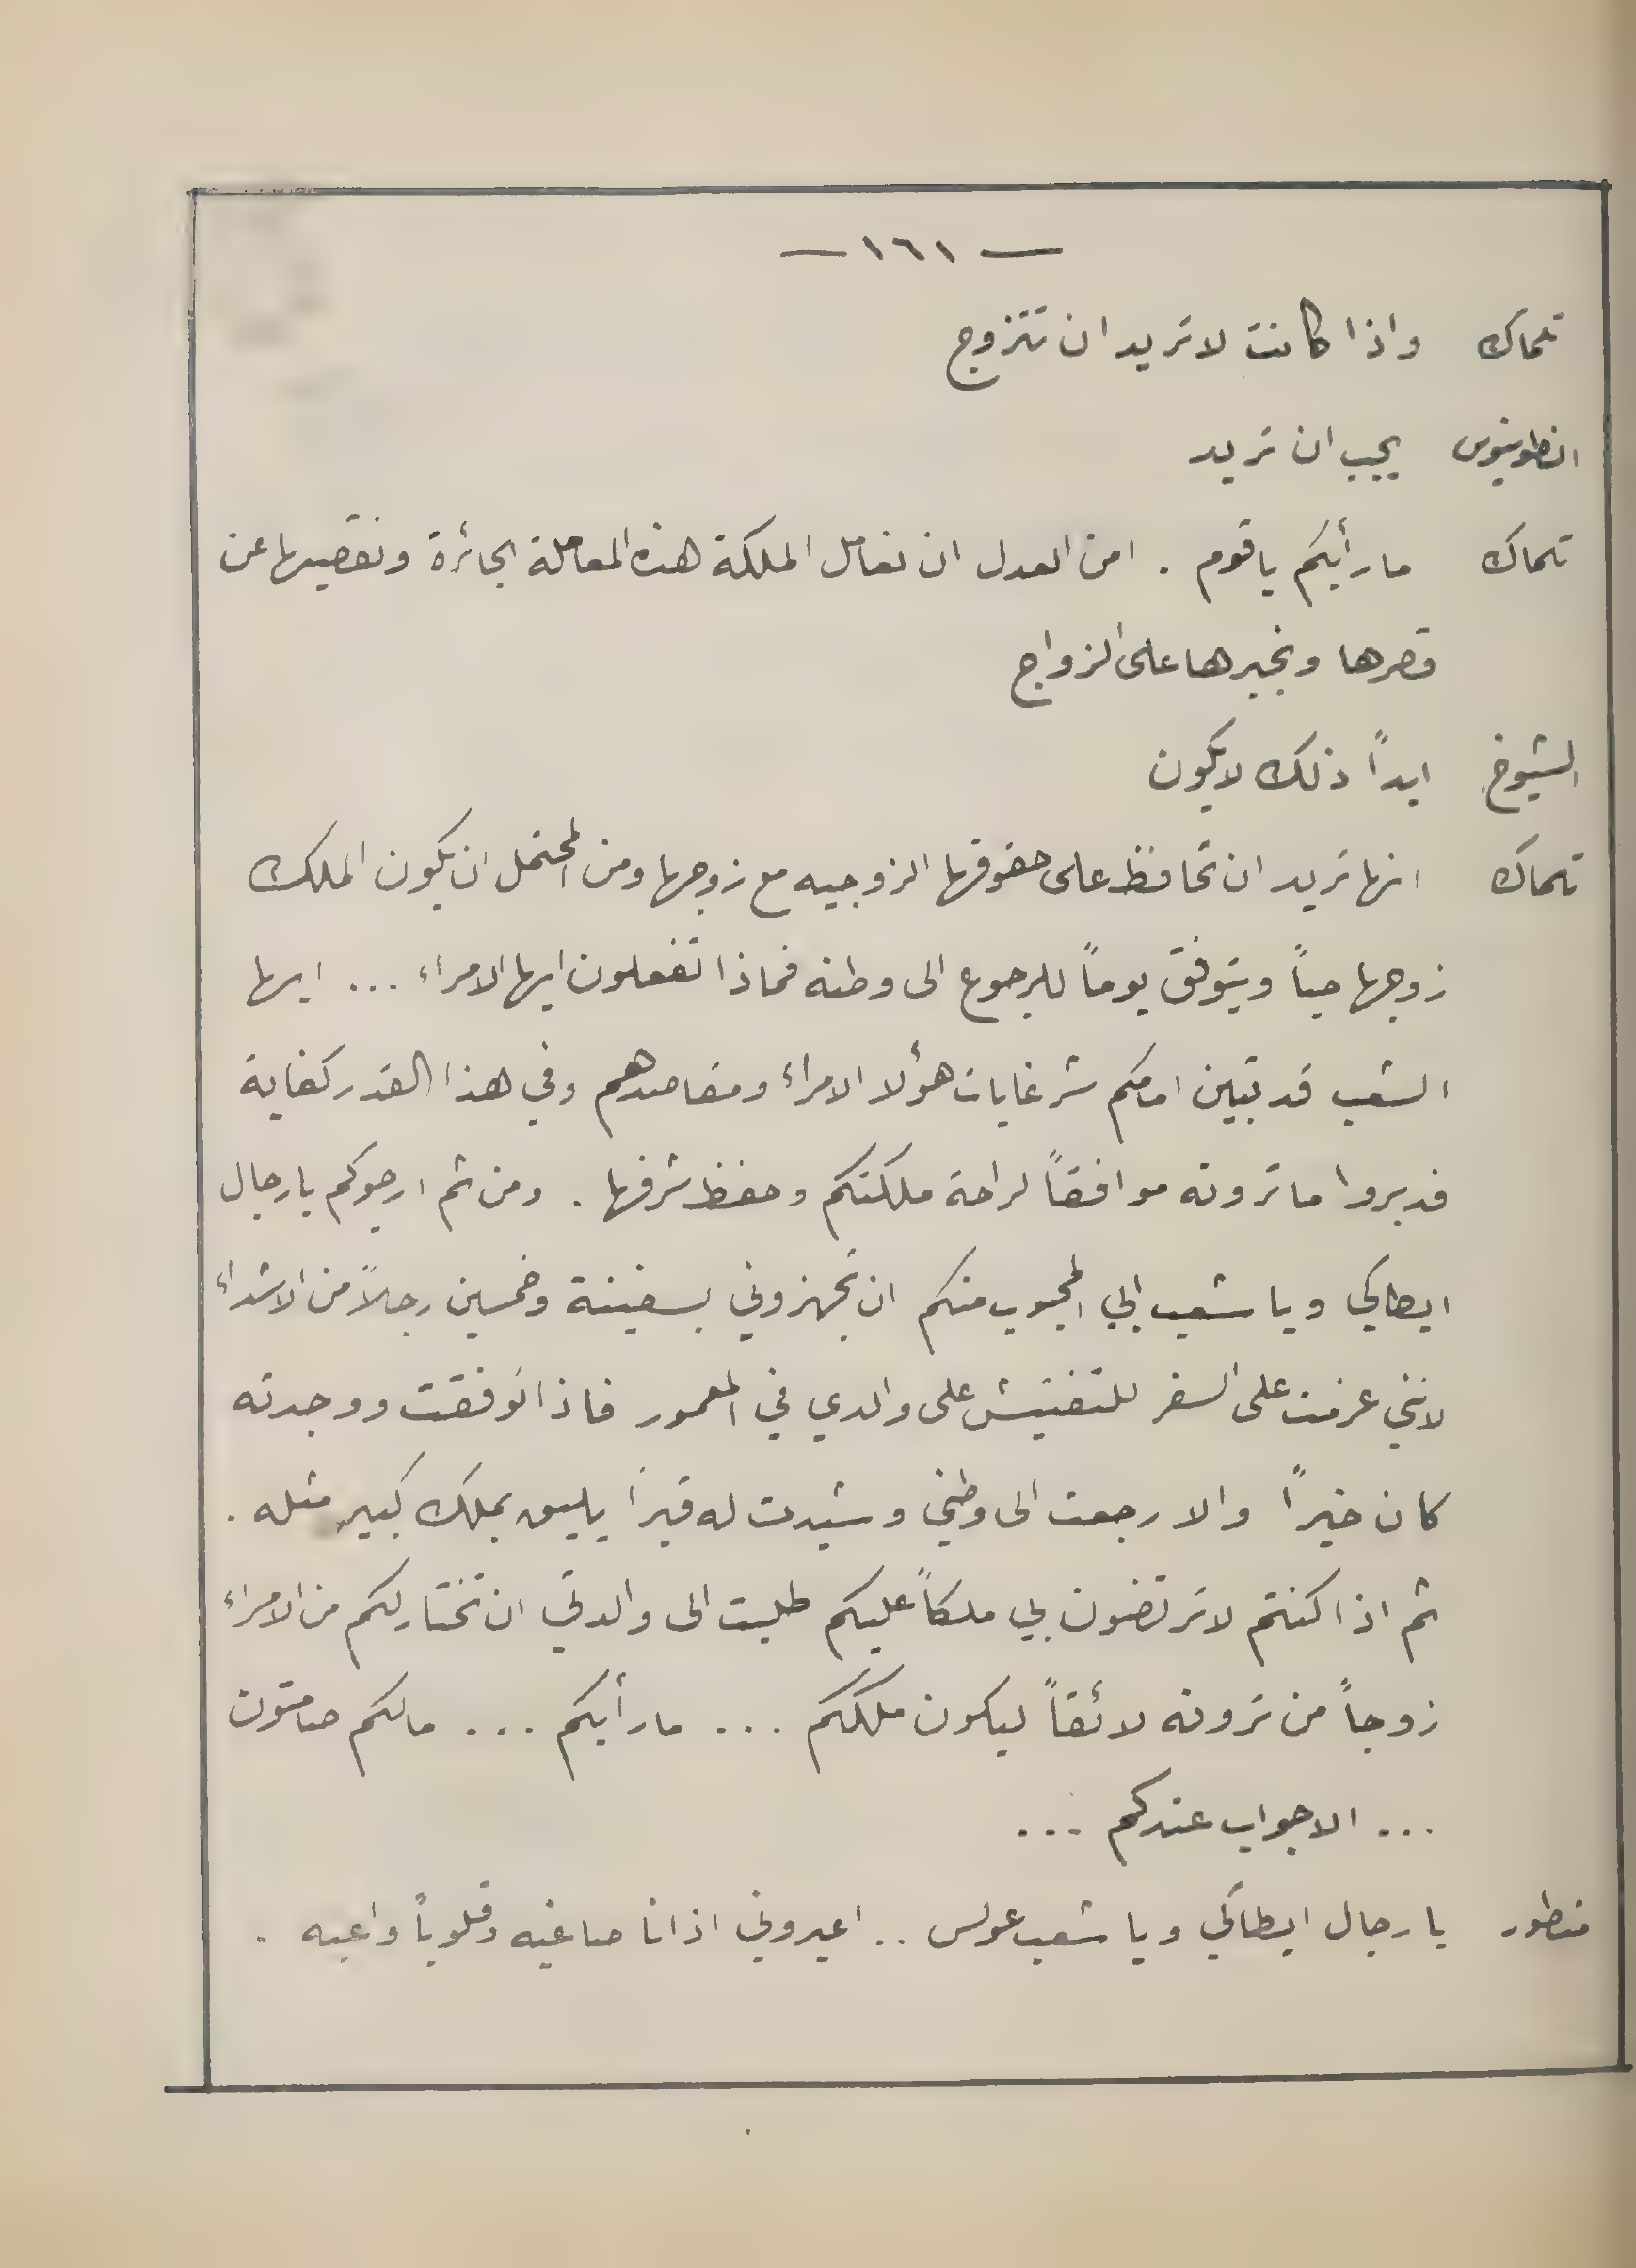 — ١٦١ —
تلماك واذا كانت لا تريد ان تتزوج
انطونيوس يجب ان تريد
تلماك ما رأيكم يا قوم . امن العدل ان نعامل الملكة هذه المعاملة الجائرة ونقصيها عن
قصرها ونجبرها على الزواج
الشيوخ ابداً ذلك لا يكون
تلماك انها تريد ان تحافظ على حقوقها الزوجيه مع زوجها ومن المحتمل ان يكون الملك
زوجها حياً ويتوفق يوماً للرجوع الى وطنه فماذا تفعلون ايها الامراء ... ايها
الشعب قد تبين امامكم شر غايات هؤلا الامراء ومقاصدهم وفي هذا القدر كفاية
فدبروا ما ترونه موافقاً لراحة ملكتكم وحفظ شرفها . ومن ثم ارجوكم يا رجال
ايطاكي ويا شعب ابي المحبوب منكم ان تجهزوني بسفينة وخمسين رجلاً من الاشداء
لانني عزمت على السفر للتفتيش على والدي في المعمور فاذا توفقت ووجدته
كان خيراً والا رجعت الى وطني وشيدت له قبراً يليق بملك كبير مثله .
ثم اذا كنتم لا ترتضون بي ملكاً عليكم طلبت الى والدتي ان تختار لكم من الامراء
زوجاً من ترونه لائقاً ليكون ملككم ... ما رأيكم ... مالكم صامتون
... الا جواب عندكم ...
منطور يا رجال ايطاكي ويا شعب عولس .. اعيروني اذانا صاغيه وقلوباً واعيه .